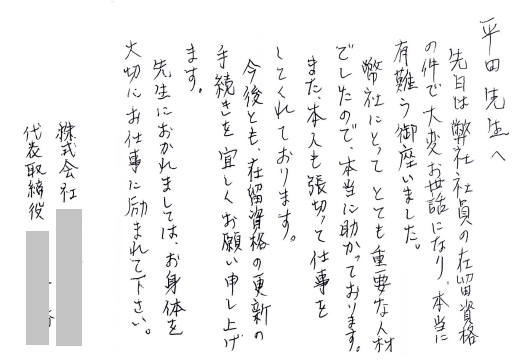 平田先生へ
先日は弊社社員の在留資格
の件で大変お世話になり、本当に
有難う御座いました。
弊社にとってとても重要な人材
でしたので、本当に助かっております。
また、本人も張切って仕事を
してくれております。
今後とも、在留資格の更新の
手続きを宜しくお願い申し上げ
ます。
先生におかれましては、お身体を
大切にお仕事に励まれて下さい。
株式会社
代表取締役